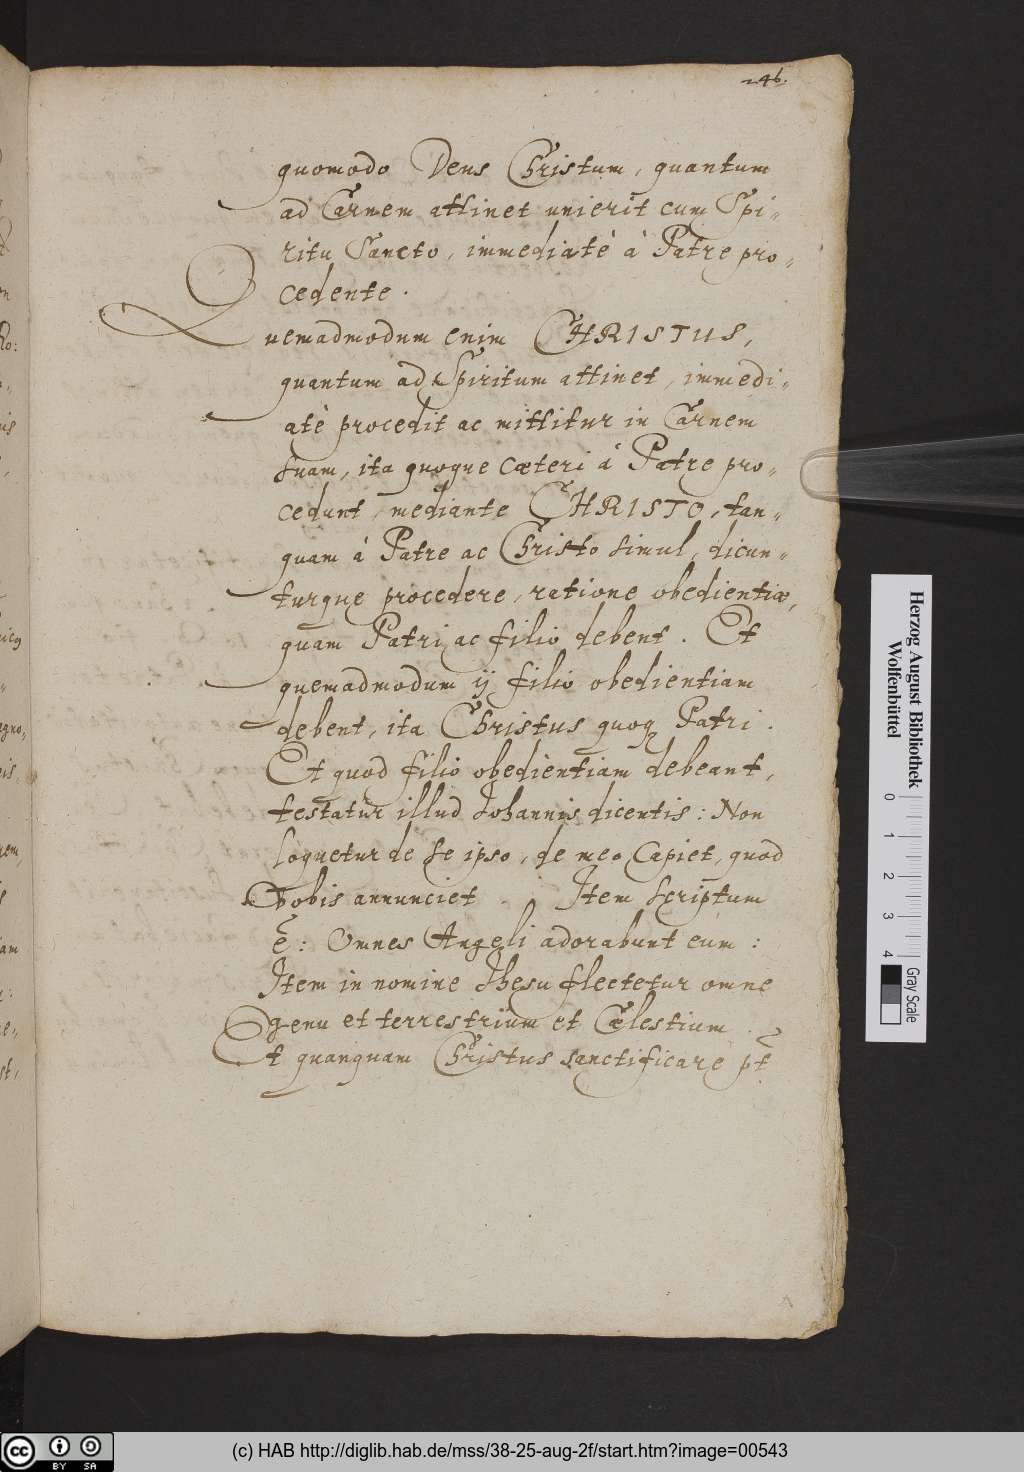 246.
quomodo Deus Christum, quantum
ad Carnem attinet unierit cum Spi-
ritu Sancto, immediatè à Patre pro-
cedente.
Quemadmodum enim CHRISTUS,
quantum ad Spiritum attinet, immedi-
atè procedit ac mittitur in Carnem
suam, ita quoque cæteri à Patre pro-
cedunt, mediante CHRISTO, tan-
quam à Patre ac Christo simul, dicun-
turque procedere, ratione obedientiæ,
quam Patri ac filio debent. Et
quemadmodum ij filio obedientiam
debent, ita Christus quoq Patri.
Et quod filio obedientiam debeant,
testatur illud Johannis dicentis: Non
loquetur de se ipso, de meo Capiet, quod
vobis annunciet. Item scriptum
ē: Omnes Angeli adorabunt eum:
Item in nomine Jhesu flectetur omne
genu et terrestrium et Cælestium.
Et quanquam Christus sanctificare pt̄
Herzog August Bibliothek
Wolfenbüttel
0 1 2 3 4
Gray Scale
(c) HAB http://diglib.hab.de/mss/38-25-aug-2f/start.htm?image=00543
cc BY SA